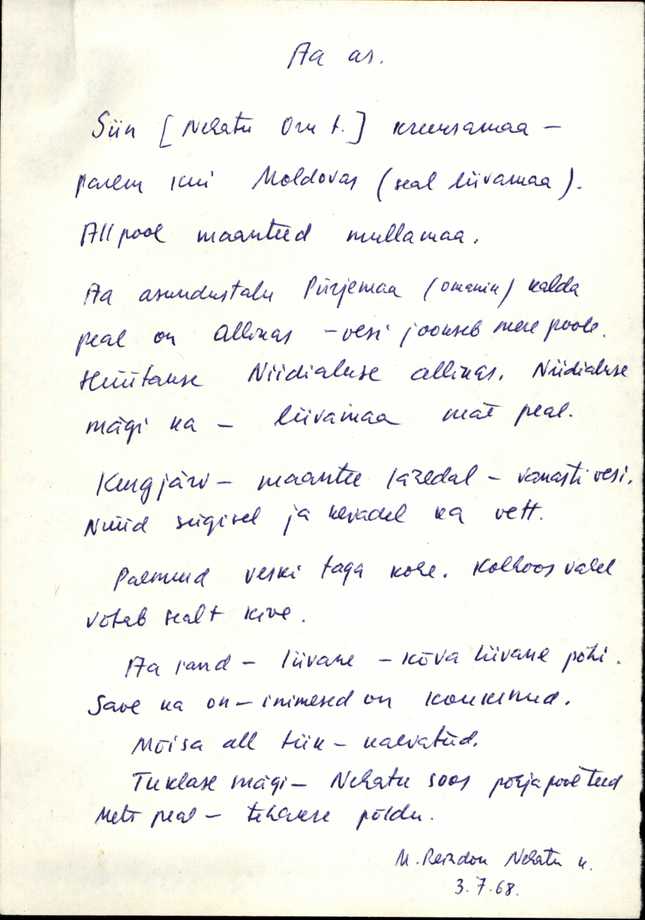 Aa as.
Siin [Nehatu Oru t.] kruusamaa –
parem kui Moldovas (seal liivamaa).
Allpool maanteed mullamaa.
Aa asundustalu Pürjemaa (omaniku) kalda
peal on allikas – vesi jookseb mere poole.
Hüütakse Niidialuse allikas. Niidialuse
mägi ka – liivamaa mäe peal.
Kurgjärv – maantee läredal – vanasti vesi.
Nüüd sügisel ja kevadel ka vett.
Paemurd veski taga kohe. Kolhoos vahel
võtab sealt kive.
Aa rand – liivane – kõva liivane põhi.
Save ka on – inimesed on
Mõisa all tiik – kaevatud.
mägi – Nehatu soos põhjapool teed
Mets peal – tehakse põldu.
Nehatu k.
3.7.68.